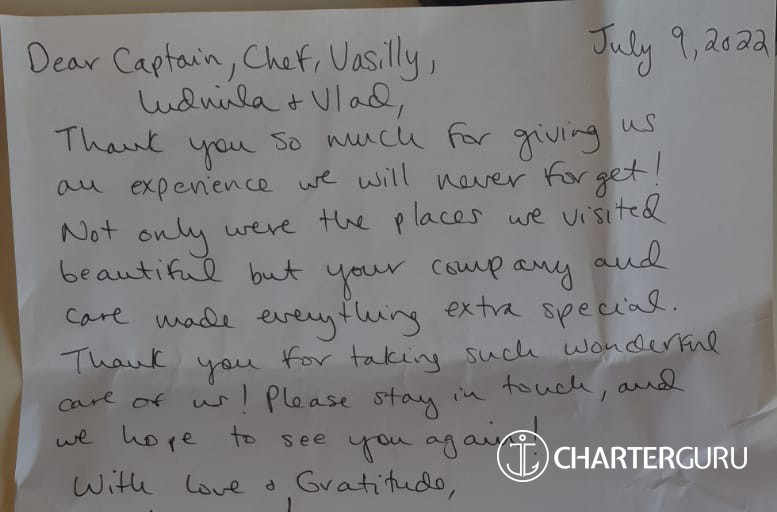 July 9, 2022
Dear Captain, Chef, Vasilly,
Ludmila & Vlad,
Thank you so much for giving us
an experience we will never forget!
Not only were the places we visited
beautiful but your company and
care made everything extra special.
Thank you for taking such wonderful
care of us! Please stay in touch, and
we hope to see you again!
With love & Gratitude,
CHARTERGURU